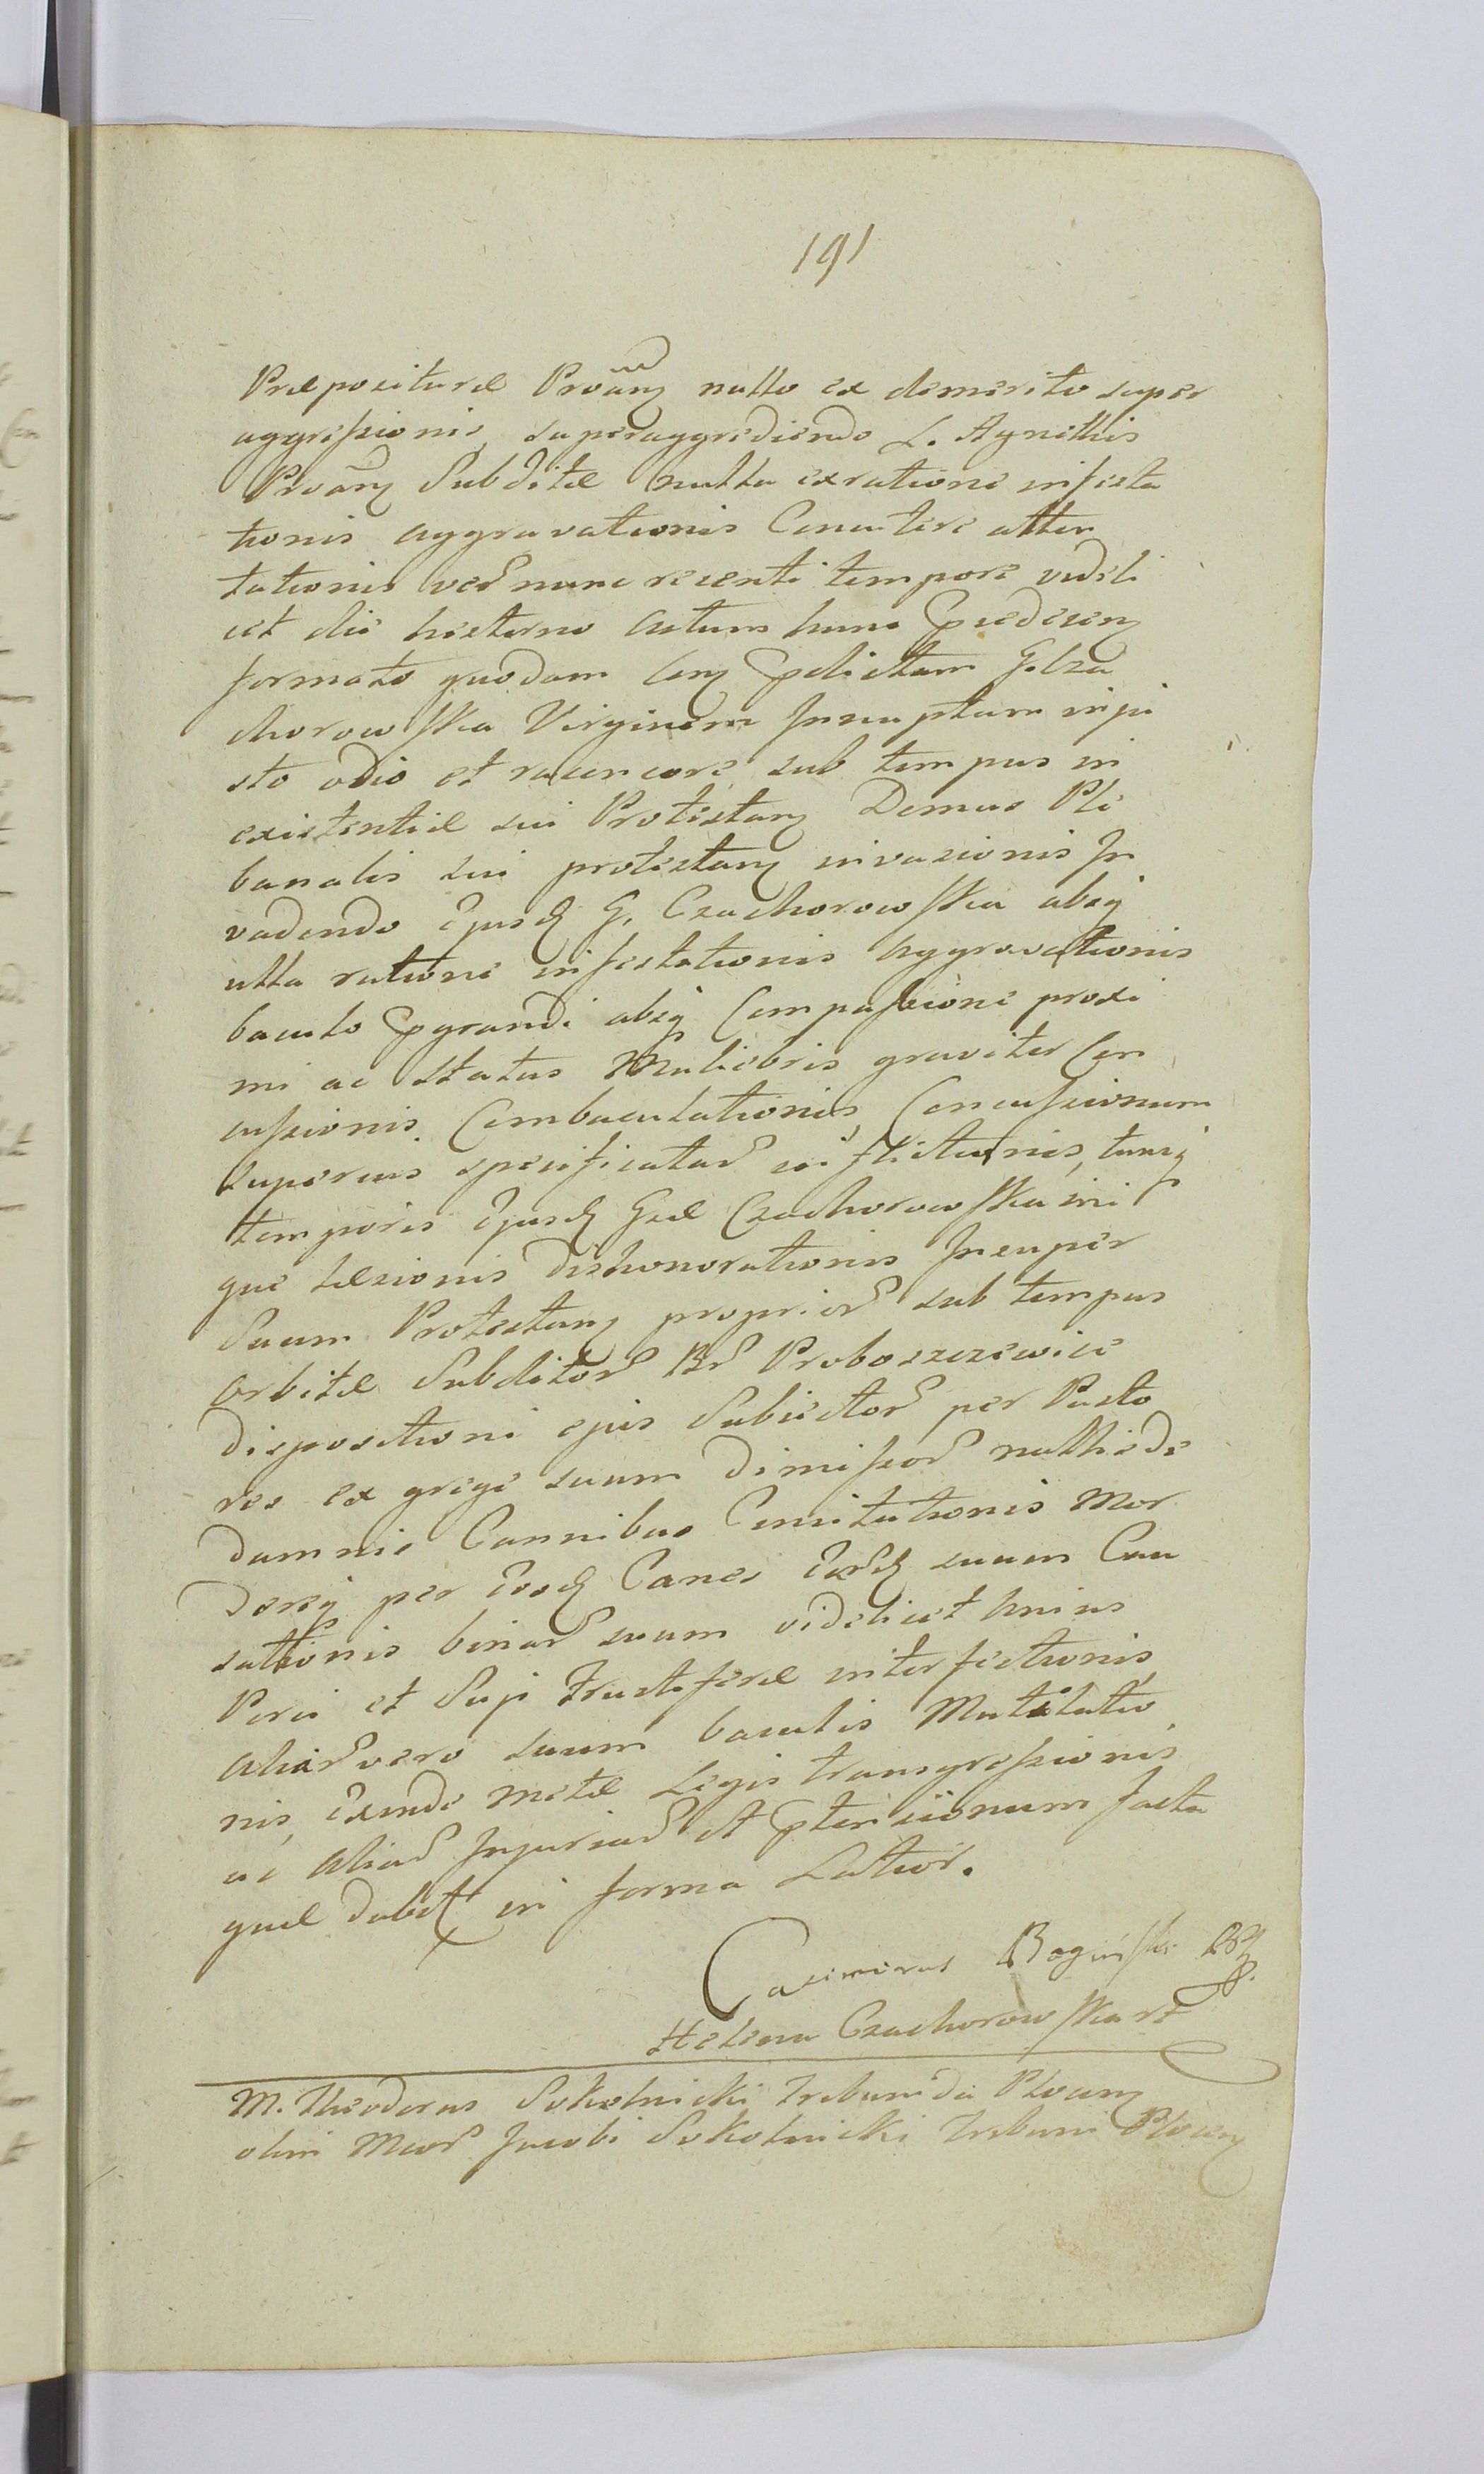 191
Præposituræ Proãm nullo ex demerito super
aggressionis, superaggrediendo L. Agnethis
Proãm Subditæ nulla ex ratione infesta
tionis aggravationis Concutere atten
tationis ver nunc recenti tempore videli
cet die hesterno actum hunc pcederen
formato quodam pdictam G. Cza
chorowska Virginem Innuptam inju
sto odio et rancore, sub tempus in
existentiæ sui Protestan Domus Ple
banalis sui protestan invasionis In
vadendo Ejusd G. Czachorowska absq
ulla ratione infestationis aggravationis
baculo pgrandi absq Compassione proxi
mi ac Status Muliebris graviter Con
cussionis Combaculationis, Concussionum
superius specificatar inflictionis, tunsq
temporis Ejusd Gsæ Czachorowska ini
quæ læsionis dishonorationis Insuper
Suum Protestan proprior sub tempus
orbitæ Subditor Br Proboszczewice
dispositioni ejus Subiector per Pasto
res ex grege suum dimissor nullis de
damnis Cannibus Concitationis Mor
dereq per Eosd Canes Eord suum Cau
sationis binar suum videlicet Unius
Porci et Supi fructiferæ interfectionis,
aliar vero suum baculis Mutilatio
nis, Exinde metæ Legis transgressionis
ac aliar Injuriar et ptensionum facta
quæ dabit in forma Latior.
Casimirus Boguński
Helena Czachorowska
M. Theodorus Sokolnicki Tribunida Plocen
olim Mcor Jacobi Sokolnicki Tribuni Plocen